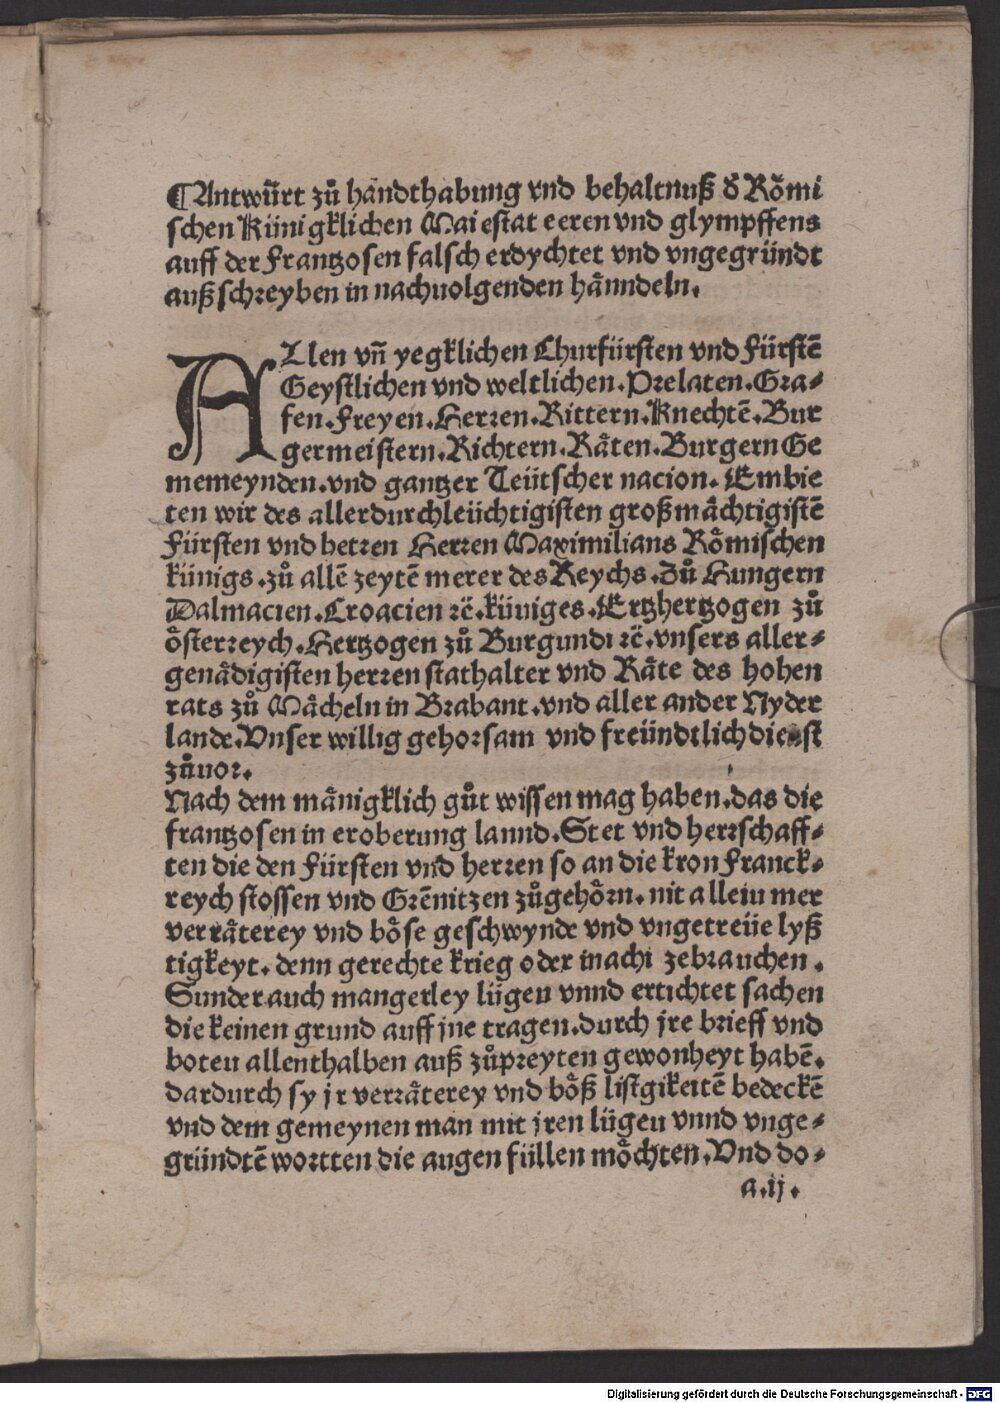 ¶Antwůrt zů handthabung vnd behaltnuß d᷑ Rômi
schen Künigklichen Maiestat eeren vnd glympffens
auff der Frantzosen falsch erdychtet vnd vngegründt
außschreyben in nachuolgenden hänndeln.
ALlen vñ yegklichen Churfürsten vnd Fürstē
Geystlichen vnd weltlichen. Prelaten. Gra⸗
fen. Freyen. Herren. Rittern. Knechtē. Bur
germeistern. Richtern. Räten. Burgern Ge
memeynden. vnd gantzer Teütscher nacion. Embie
ten wir des allerdurchleüchtigisten großmächtigistē
Fürsten vnd herren Herren Maximilians Römischen
künigs. zů allē zeytē merer des Reychs. Zů Hungern
Dalmacien. Croacien ꝛc̄. küniges. Ertzhertzogen zů
österreych. Hertzogen zů Burgundi ꝛc̄. vnsers aller⸗
genädigisten herren stathalter vnd Räte des hohen
rats zů Mächeln in Brabant. vnd aller ander Nyder
lande. Vnser willig gehorsam vnd freündtlich dienst
zůuor.
Nach dem mänigklich gůt wissen mag haben. das die
frantzosen in eroberung lannd. Stet vnd herrschaff⸗
ten die den Fürsten vnd herren so an die kron Franck⸗
reych stossen vnd Grēnitzen zůgehörn. nit allein mer
verräterey vnd böse geschwynde vnd vngetreüe lyß
tigkeyt. denn gerechte krieg oder macht zebrauchen.
Sunder auch mangerley lügen vnnd ertichtet sachen
die keinen grund auff jne tragen. durch jre brieff vnd
boten allenthalben auß zůpreyten gewonheyt habē.
dardurch sy jr verräterey vnd böß listgikeitē bedeckē
vnd dem gemeynen man mit jren lügen vnnd vnge⸗
gründtē wortten die augen füllen möchten. Vnd do⸗
a.ij.
Digitalisierung gefördert durch die Deutsche Forschungsgemeinschaft - DFG